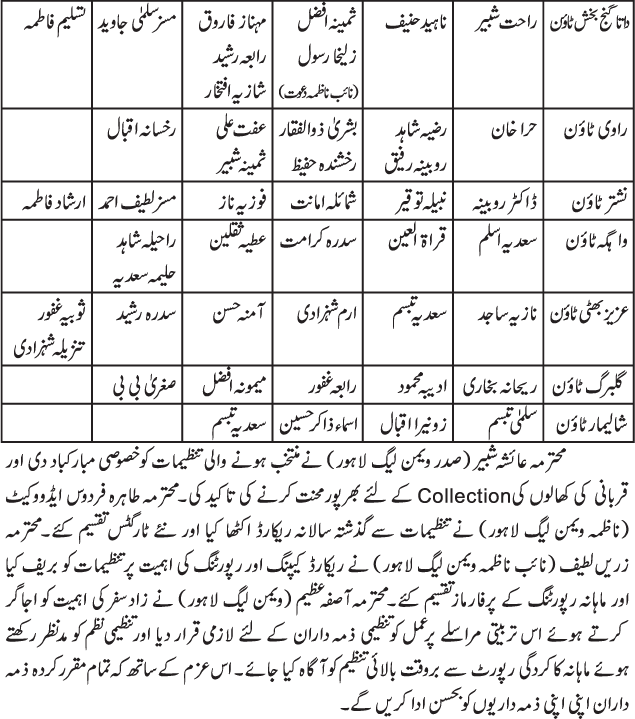 داتا گنج بخش ٹاؤن راحت شبیر ناہید حنیف ثمینہ افضل مہناز فاروق مسز سلمٰی جاوید تسلیم فاطمہ
زلیخا رسول رابعہ رشید
(نائب ناظمہ دعوت) شازیہ افتخار
راوی ٹاؤن حرا خان رضیہ شاہد بشریٰ ذوالفقار عفت علی رخسانہ اقبال
روبینہ رفیق رخشندہ حفیظ ثمینہ شبیر
نشتر ٹاؤن ڈاکٹر روبینہ نبیلہ توقیر شمائلہ امانت فوزیہ ناز مسز لطیف احمد ارشاد فاطمہ
واہگہ ٹاؤن سعدیہ اسلم قراۃ العین سدرہ کرامت عطیہ ثقلین راحیلہ شاہد
حلیمہ سعدیہ
عزیز بھٹی ٹاؤن نازیہ ساجد سعدیہ تبسم ارم شہزادی آمنہ حسن سدرہ رشید ثوبیہ غفور
تنزیلہ شہزادی
گلبرگ ٹاؤن ریحانہ بخاری ادیبہ محمود رابعہ غفور میمونہ افضل صغریٰ بی بی
شالیمار ٹاؤن سلمٰی تبسم زونیرا اقبال اسماء ذاکر حسین سعدیہ تبسم
محترمہ عائشہ شبیر (صدر ویمن لیگ لاہور) نے منتخب ہونے والی تنظیمات کو خصوصی مبارکباد دی اور
قربانی کی کھالوں کی Collection کے لئے بھرپور محنت کرنے کی تاکید کی۔ محترمہ طاہرہ فردوس ایڈووکیٹ
(ناظمہ ویمن لیگ لاہور) نے تنظیمات سے گذشتہ سالانہ ریکارڈ اکٹھا کیا اور نئے ٹارگٹس تقسیم کئے۔ محترمہ
زریں لطیف (نائب ناظمہ ویمن لیگ لاہور) نے ریکارڈ کیپنگ اور رپورٹنگ کی اہمیت پر تنظیمات کو بریف کیا
اور ماہانہ رپورٹنگ کے پرفارماز تقسیم کئے۔ محترمہ آصفہ عظیم (ویمن لیگ لاہور) نے زاد سفر کی اہمیت کو اجاگر
کرتے ہوئے اس تربیتی مراسلے پر عمل کو تنظیمی ذمہ داران کے لئے لازمی قرار دیا اور تنظیمی نظم کو مدنظر رکھتے
ہوئے ماہانہ کارکردگی رپورٹ سے بروقت بالائی تنظیم کو آگاہ کیا جائے۔ اس عزم کے ساتھ کہ تمام مقرر کردہ ذمہ
داران اپنی اپنی ذمہ داریوں کو بحسن ادا کریں گے۔